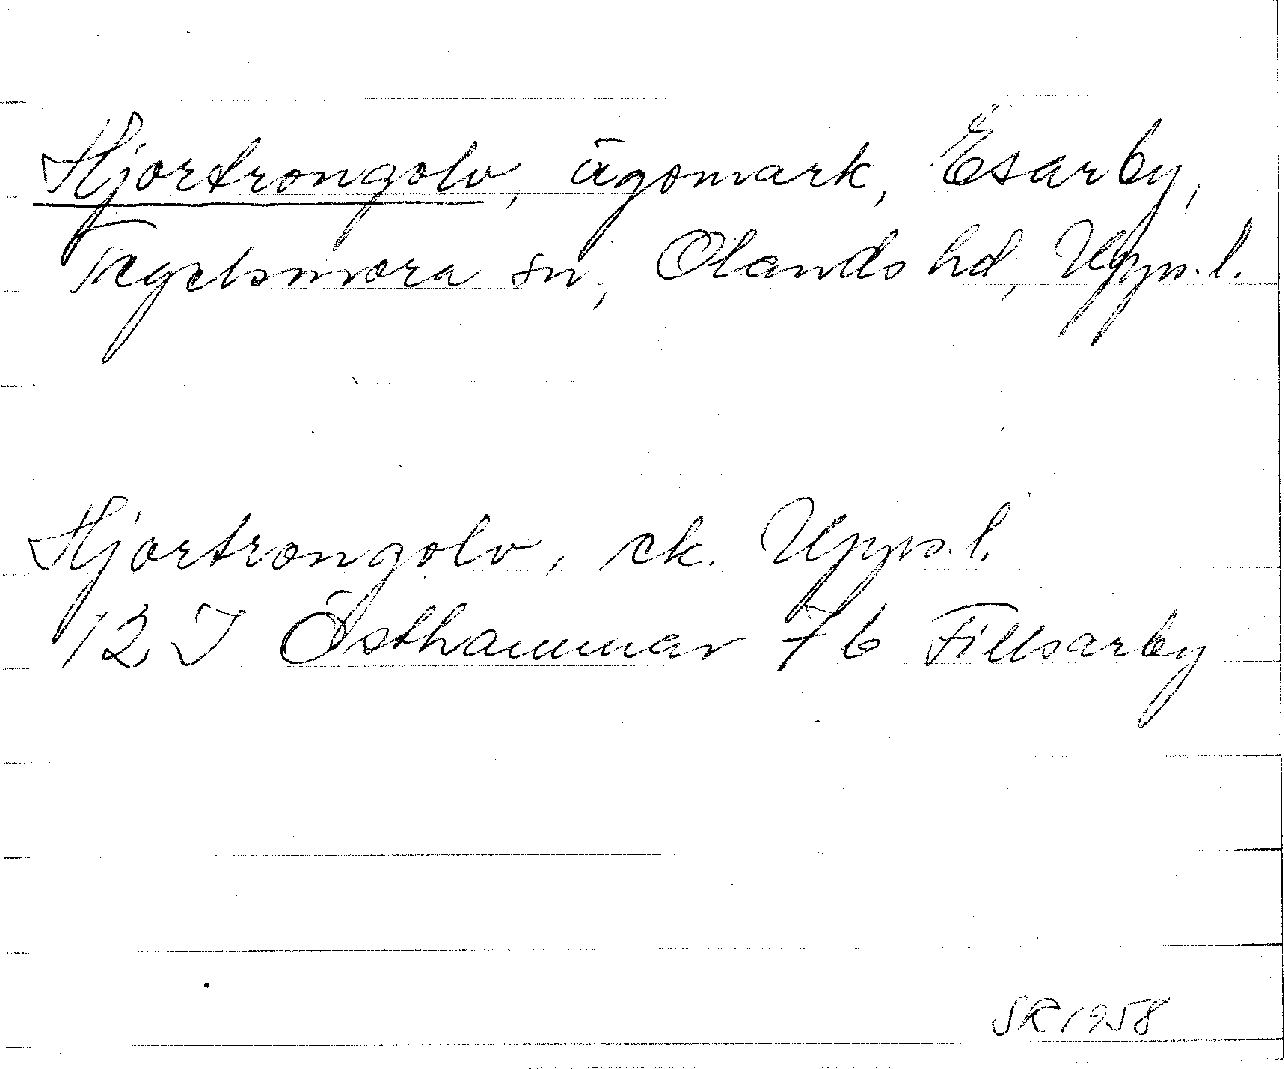 Hjortrongolv, ägomark, Esarby,
Tegelsmora sn, Olands hd, Upps.l.
Hjortrongolv, ek. Upps.l.
12 I Östhammar 7b Fillsarby
SR 1958